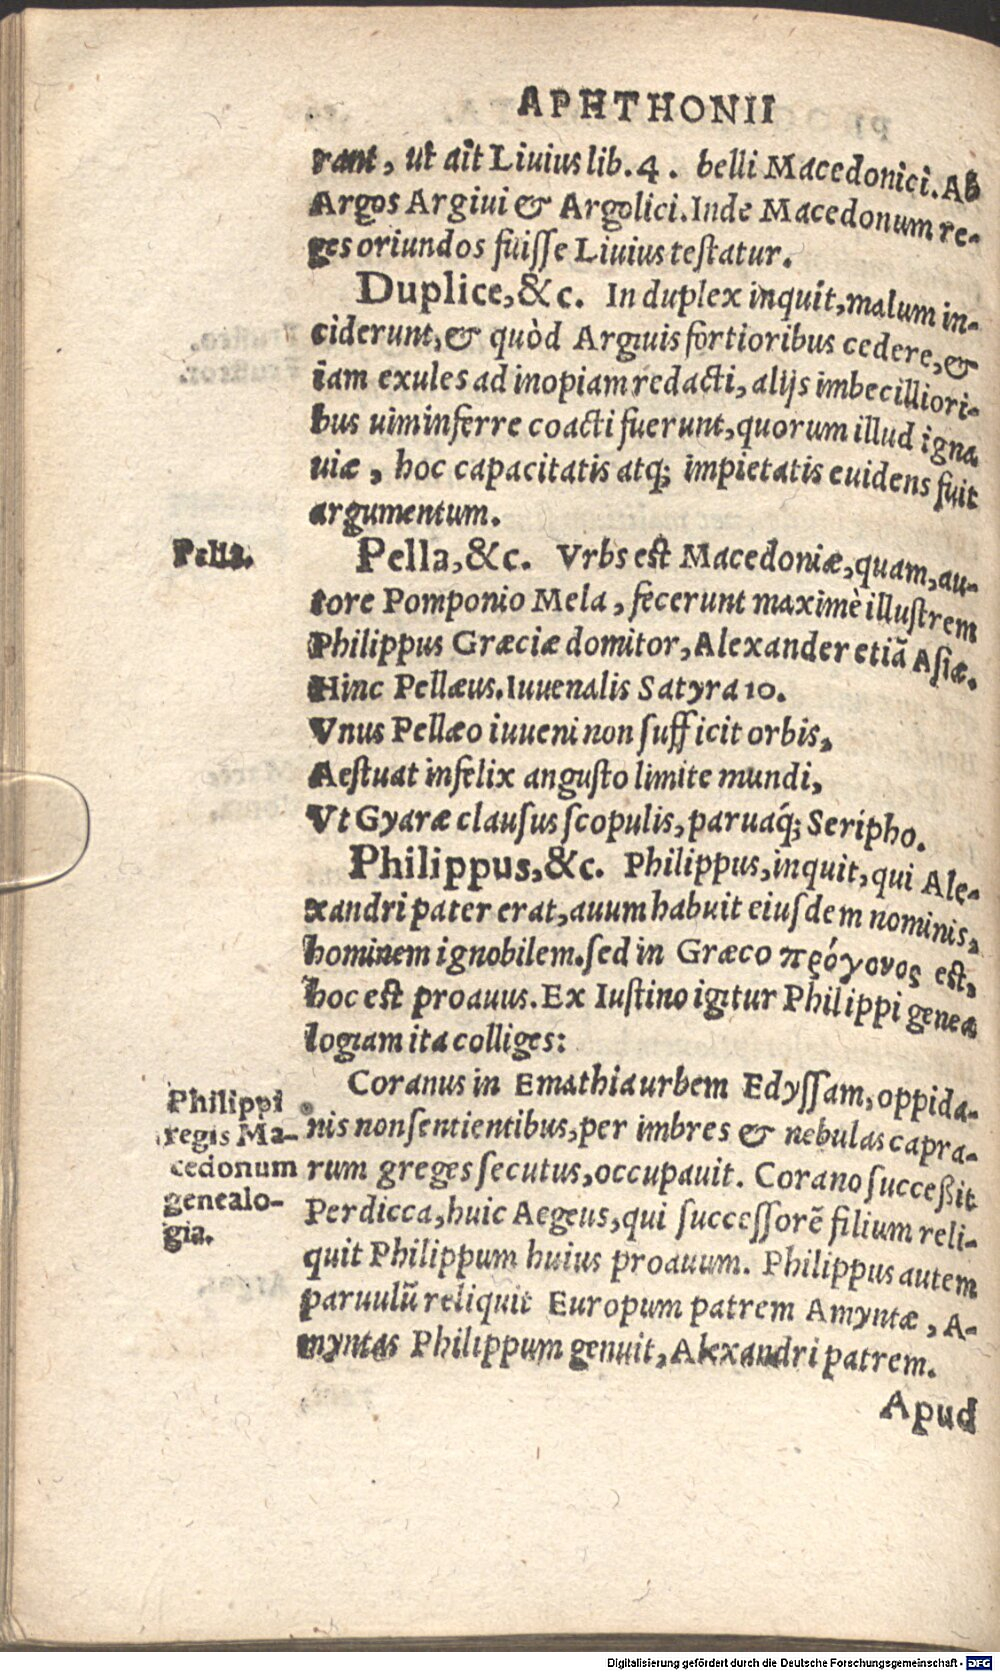 APHTHONII
rant, ut ait Liuius lib. 4. belli Macedonici. Ab
Argos Argiui & Argolici. Inde Macedonum re-
ges oriundos fuiſſe Liuius teſtatur.
Duplice, &c. In duplex inquit, malum in-
ciderunt, & quòd Argiuis fortioribus cedere, &
iam exules ad inopiam redacti, alijs imbecilliori-
bus uim inferre coacti fuerunt, quorum illud igna
uiæ, hoc capacitatis atq; impietatis euidens fuit
argumentum.
Pella.
Pella, &c. Vrbs eſt Macedoniæ, quam, au-
tore Pomponio Mela, fecerunt maximè illuſtrem
Philippus Græciæ domitor, Alexander etiã Aſiæ.
Hinc Pellæus. Iuuenalis Satyra 10.
Vnus Pellæo iuueni non ſufficit orbis,
Aeſtuat infelix anguſto limite mundi,
Vt Gyaræ clauſus ſcopulis, paruaq́; Seripho.
Philippus, &c. Philippus, inquit, qui Ale-
xandri pater erat, auum habuit eiuſdem nominis,
hominem ignobilem. ſed in Græco πρόγονος eſt,
hoc eſt proauus. Ex Iuſtino igitur Philippi genea
logiam ita colliges:
Philippi
regis Ma-
cedonum
genealo-
gia.
Coranus in Emathia urbem Edyſſam, oppida-
nis non ſentientibus, per imbres & nebulas capra-
rum greges ſecutus, occupauit. Corano ſucceßit
Perdicca, huic Aegeus, qui ſucceſſorē filium reli-
quit Philippum huius proauum. Philippus autem
paruulū reliquit Europum patrem Amyntæ, A-
myntas Philippum genuit, Alexandri patrem.
Apud
Digitalisierung gefördert durch die Deutsche Forschungsgemeinschaft - DFG